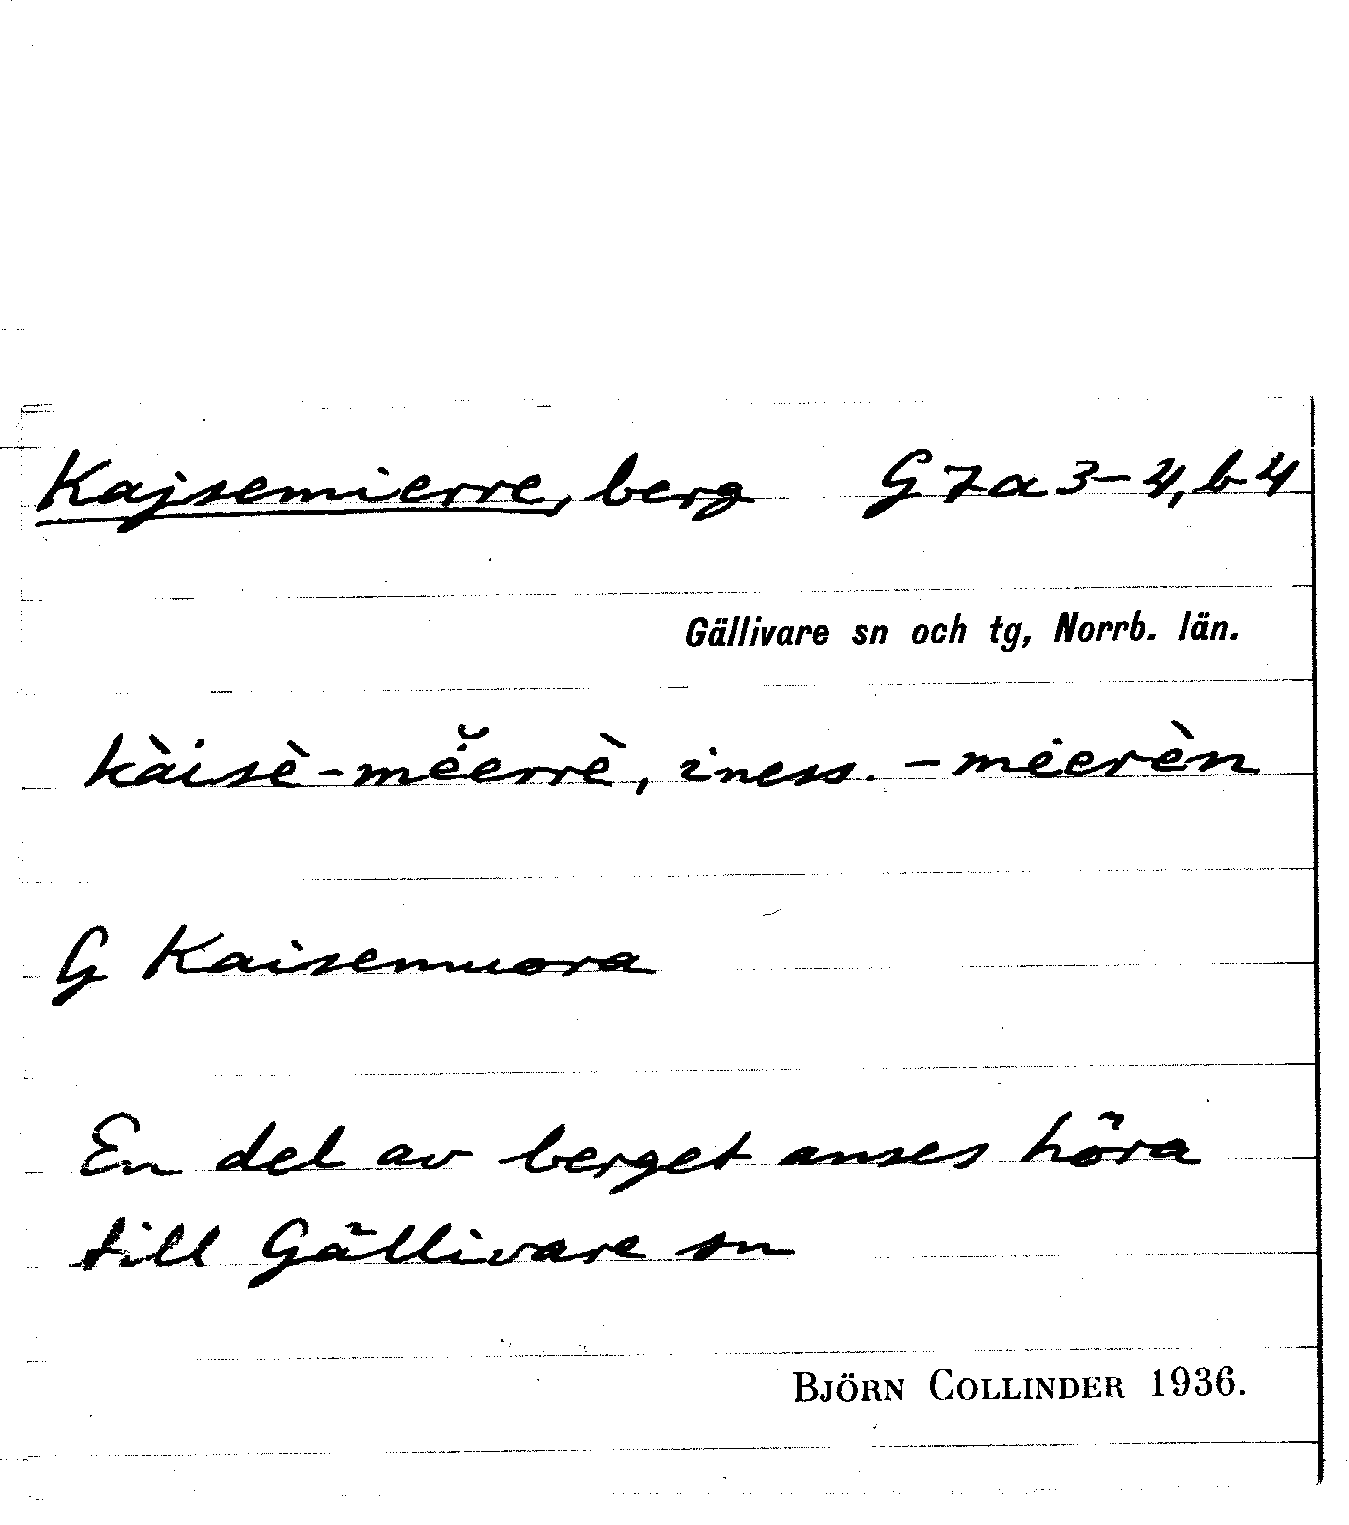 Kajsemierre, berg G7a3-4, b4
Gällivare sn och tg, Norrb. län.
kàisè-mė̆errè, iness. -mėerèn
G Kaisemuora
En del av berget anses höra
till Gällivare sn
BJÖRN COLLINDER 1936.